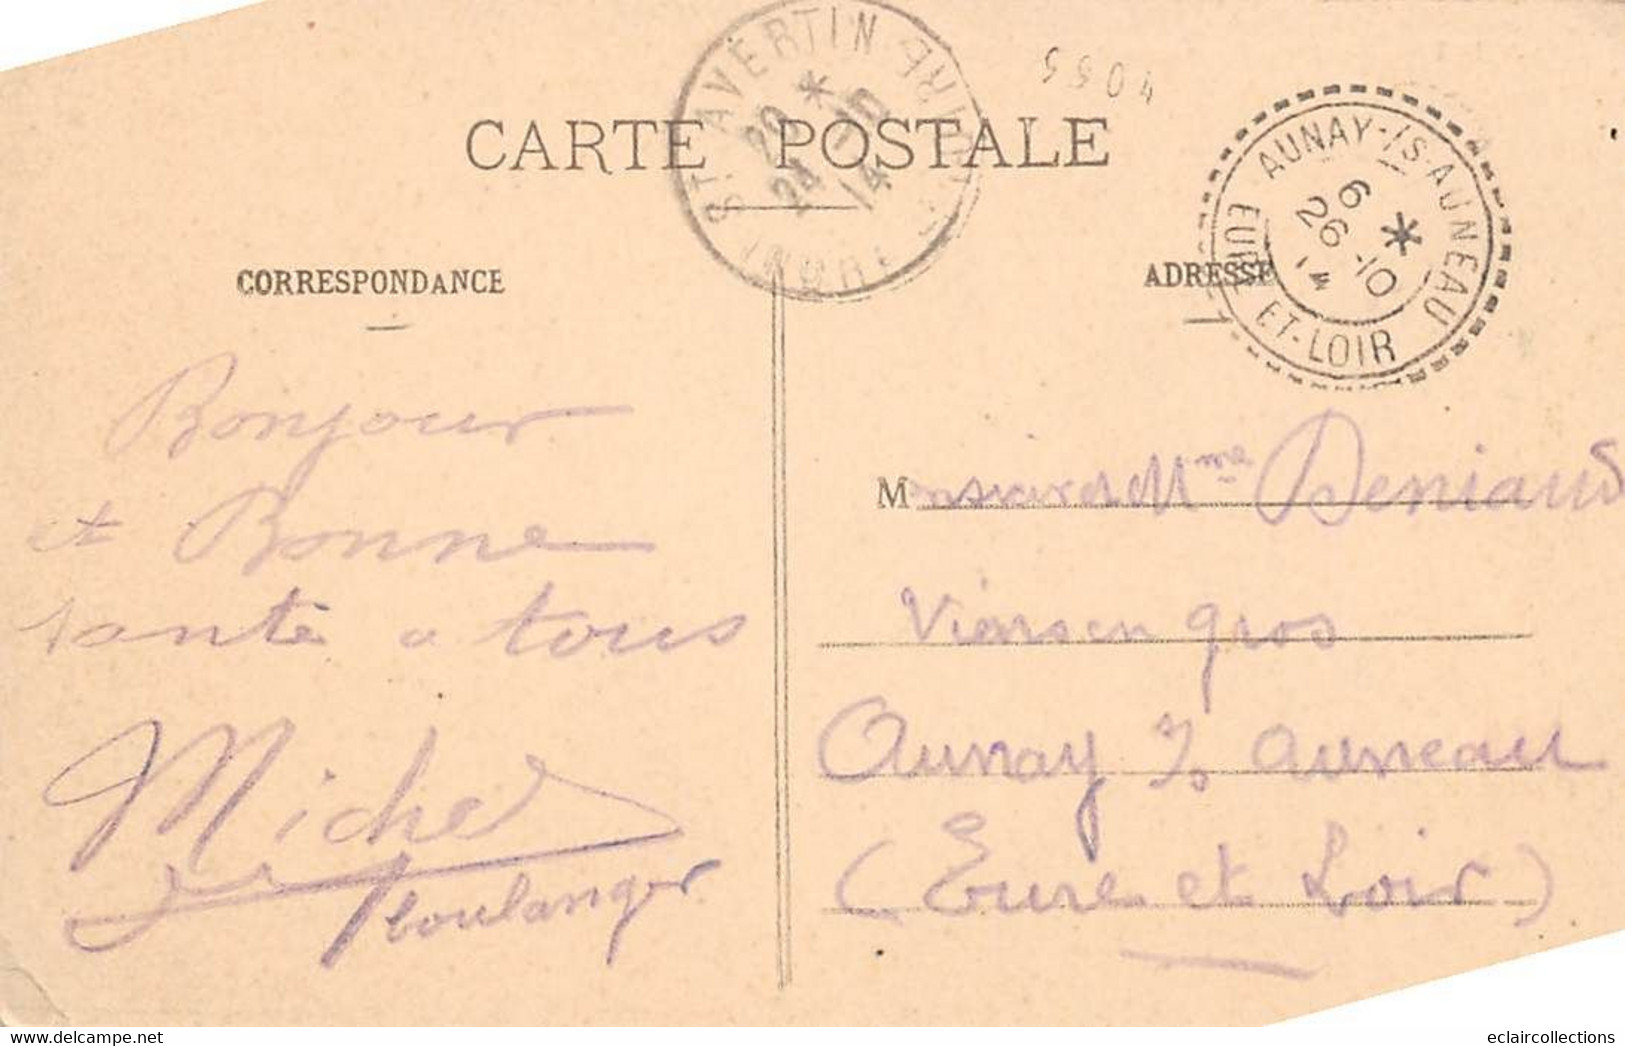 ST AVERTIN
INDRE-ET-LOIRE
20 *
24 -10
14
5504
CARTE POSTALE
AUNAY-/S-AUNEAU
EURE ET-LOIR
6 *
26 -10
14
CORRESPONDANCE
ADRESSE
Bonjour
et Bonne
santé a tous
Michel
boulanger
Monsieur et Mme Deniaud
Vins en gros
Aunay /s auneau
(Eure et Loir)
www.delcampe.net
eclaircollections